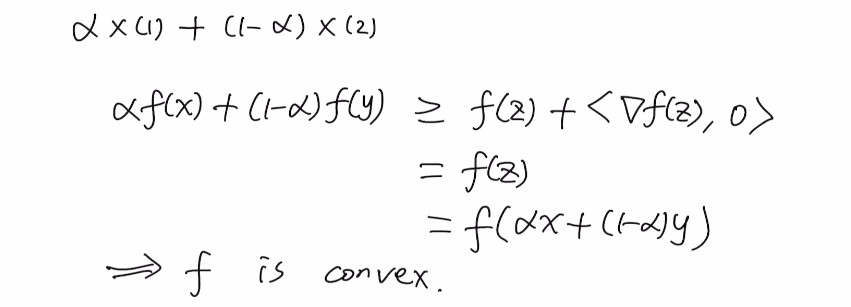 α × (1) + (1-α) × (2)
αf(x) + (1-α)f(y) ≥ f(z) + <∇f(z), 0>
= f(z)
= f(αx + (1-α)y)
⟹ f is convex.